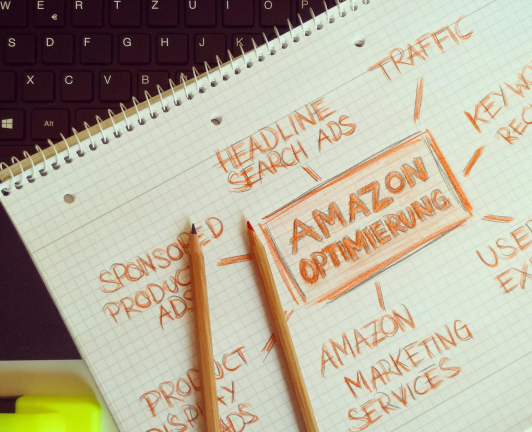 W E R T Z U I O P
€
S D F G H J K
X C V B
Alt
TRAFFIC
HEADLINE
SEARCH ADS
AMAZON
OPTIMIERUNG
SPONSORED
PRODUCT
ADS
AMAZON
MARKETING
SERVICES
PRODUCT
DISPLAY
ADS